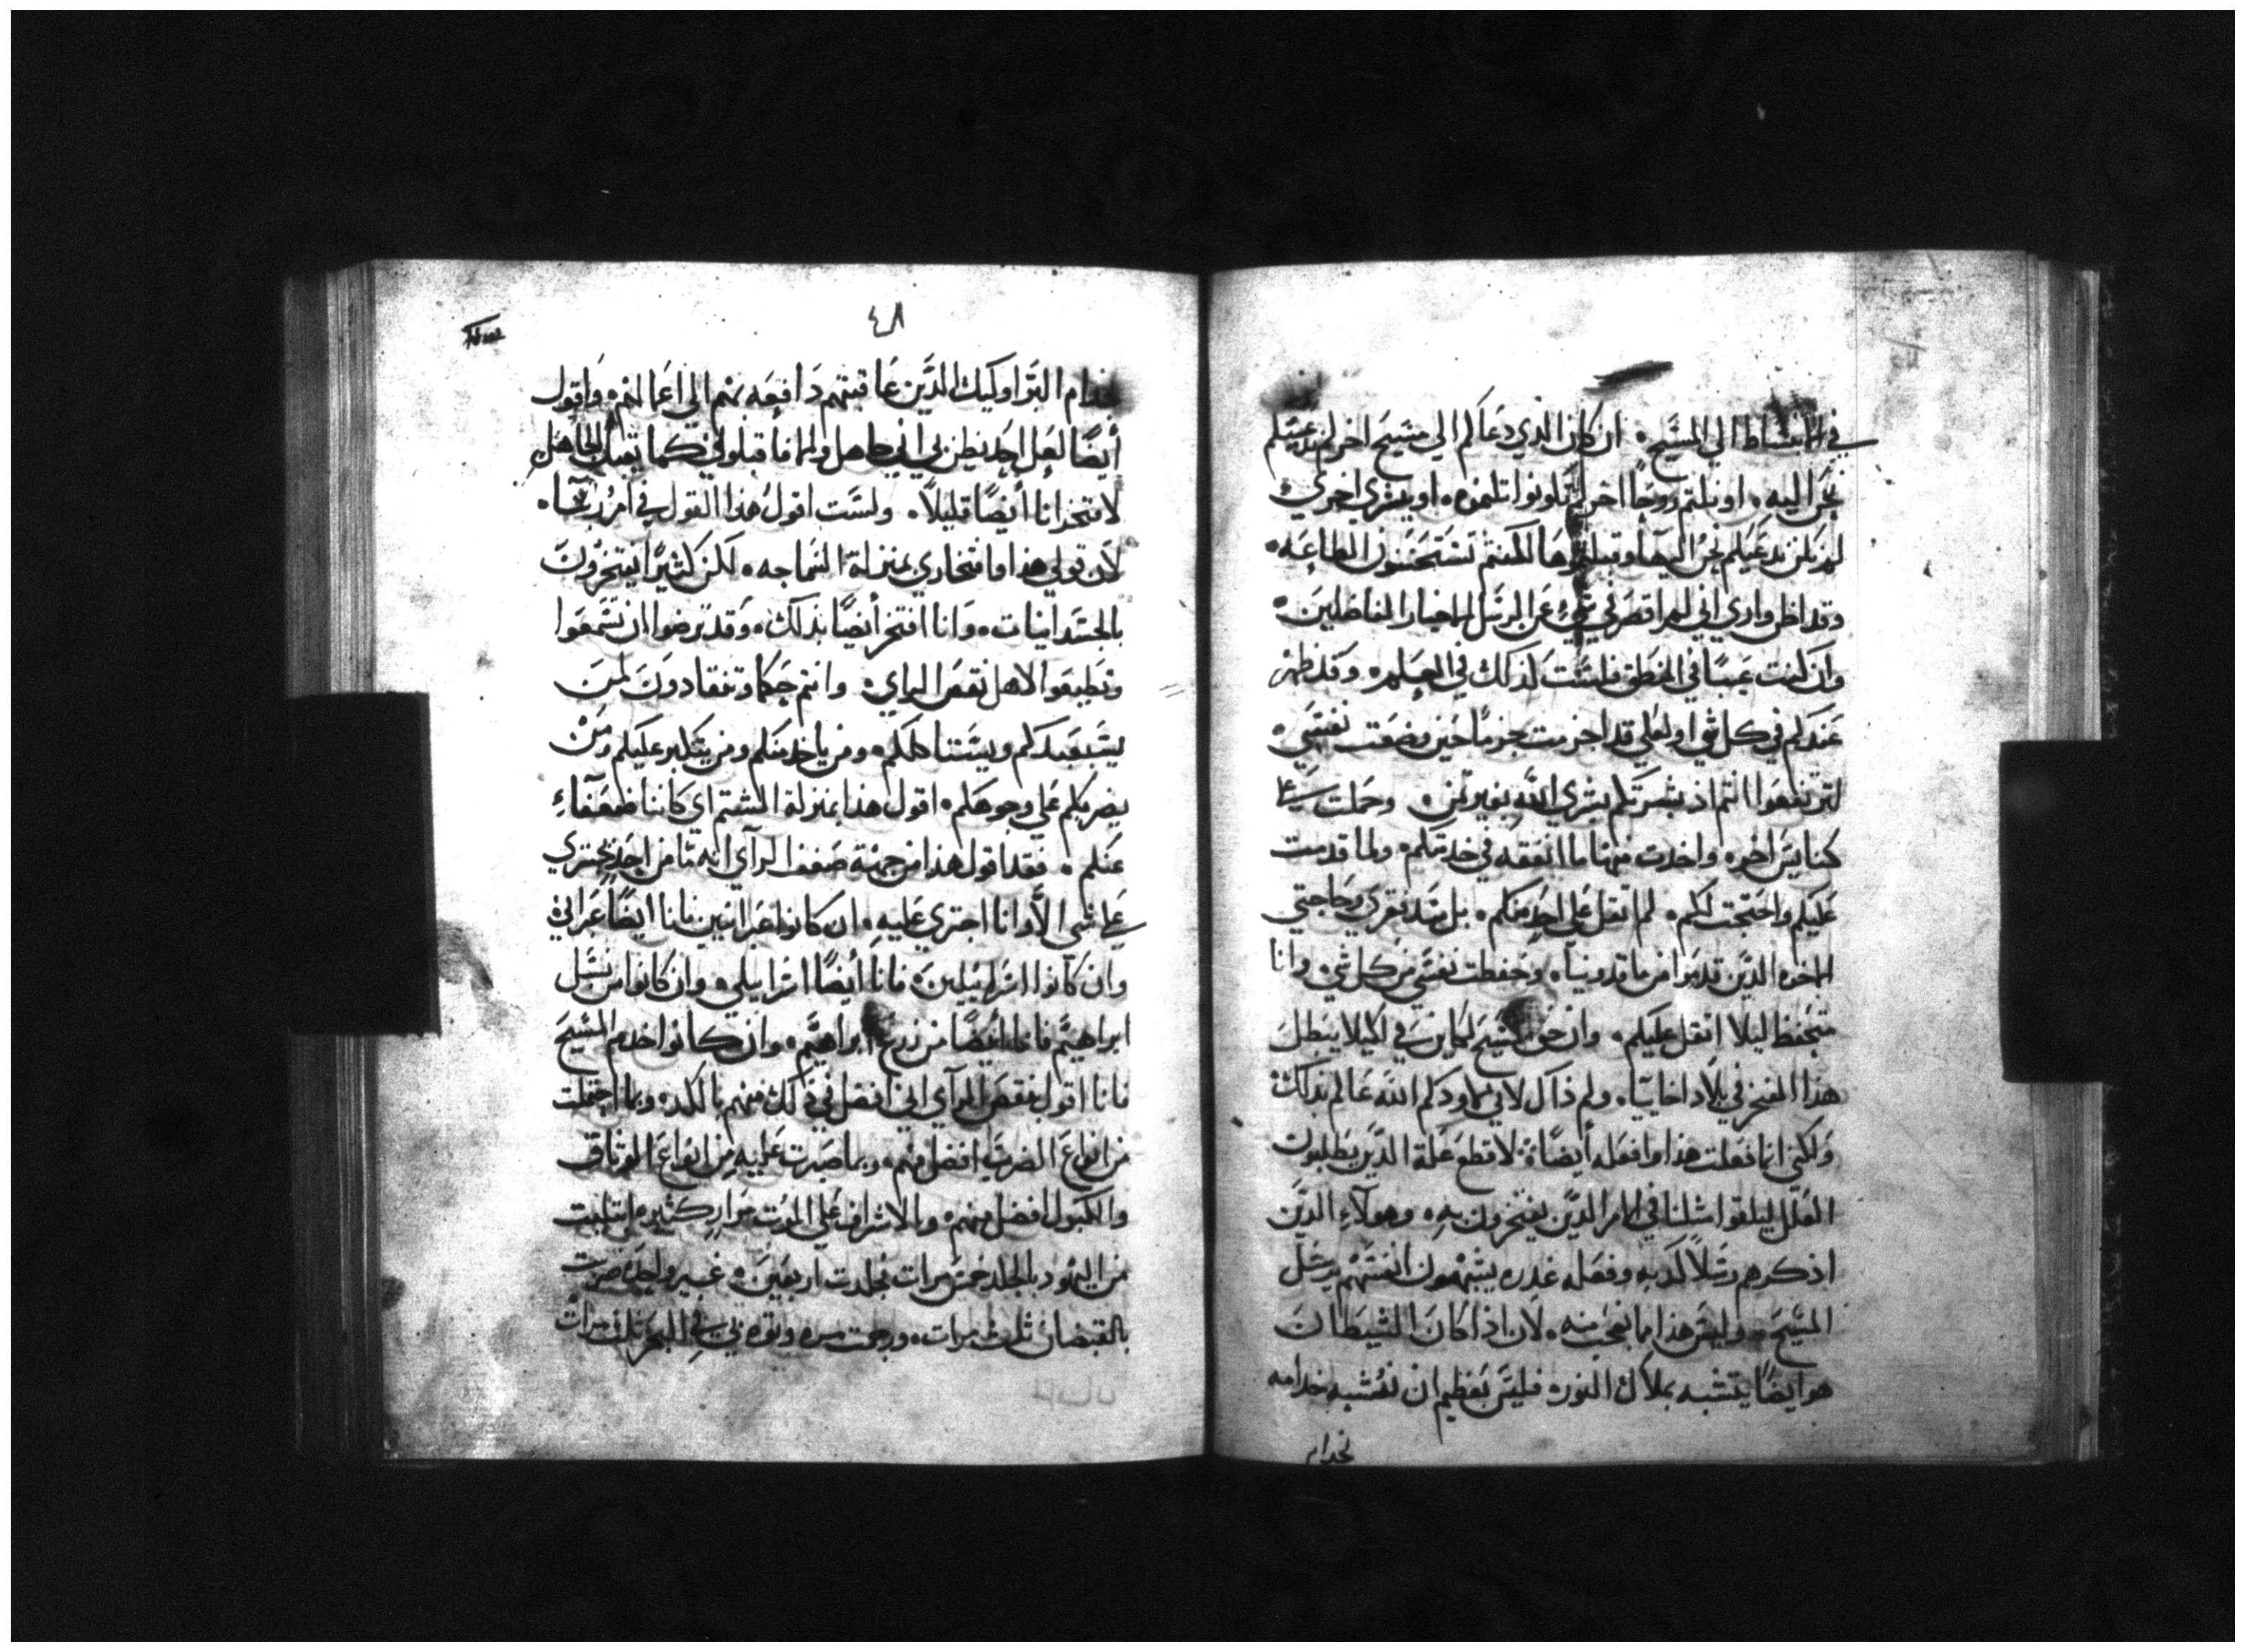 في الانبساط الي المسيح ۰ ان كان الذي دعاكم الي مسيح اخر لم ندعكم
نحن اليه ۰ او نلتم روحًا اخر لم تكونوا نلتموه ۰ او بشري اخري
لم نكن ندعيكم نحن اليها وقبلتموها لكنتم تستحسنون الطاعه ۰
وقد اظن واري اني لم اقصر في شيء عن الرسل الاخيار الفاضلين ۰
وان كنت عيبًا في المنطق فلست كذلك في العلم ۰ وقد ظهر
عندكم في كل شي او لعلي قد اجرمت جرمًا حين وضعت نفسي ۰
لترتفعوا انتم اذ بشرتكم بشري الله بغير ثمن ۰ وحملت علي
كنايس اخره واخدت منها ما انفقه في خدمتكم ۰ ولما قدمت
عليكم واحتجت لكم ۰ لم اثقل علي احد منكم ۰ بل سد فقري وحاجتي
الاخوه الدين قدموا من ماقدونيا ۰ وحفظت نفسي من كل شي ۰ وانا
متحفظ ليلا اثقل عليكم ۰ وان حق المسيح لكاين في لكيلا يبطل
هذا الفخر في بلاد اخاييا ۰ ولم ذاك لاني لا اودكم الله عالم بذلك
ولكني انما فعلت هذا وافعله أيضًا ۰ لاقطع علة الدين يطلبون
العلل ليلفوا مثلنا في الامر الدين يفتخرون به ۰ وهولآء الدين
اذكرهم رسلاً كدبه وفعله غدره يشبهون انفسهم برسل
المسيح ۰ وليس هذا مما نعجب منه ۰ لان اذا كان الشيطان
هو ايضًا يتشبه بملاك النور ۰ فليس بعظيم ان تشبه خدامه
نخدام
٤٨
بخدام البر اوليك الدين عاقبتهم دافعه بهم الي اعمالهم ۰ واقول
أيضًا لعل احد يظن بي اني جاهل والا فاقبلوني كما يقبل الجاهل
لافتخر انا أيضًا قليلاً ۰ ولست اقول هذا القول في امر ربنا ۰
لان قولي هذا وافتخاري بمنزلة السماجه ۰ لكن كثيرًا يفتخرون
بالجسدانيات ۰ وانا افتخر أيضًا بذلك ۰ وقد ترضوا ان تسمعوا
وتطيعوا لاهل نقص الراي ۰ وانتم حكما وتنقادون لمن
يستعبدكم ويستاكلكم ۰ ومن ياخد منكم ومن يتكبر عليكم ومن
يضربكم علي وجوهكم ۰ اقول هذا بمنزلة الشتم اي كاننا ضعفآء
عنكم ۰ فقد اقول هذا من جهة ضعف الرآي انه ما من احد يجتري
علي شي الا وانا اجتري عليه ۰ ان كانوا عبرانين فانا ايضًا عبراني
وان كآنوا اسراييليين ۰ فانا أيضًا اسراييلي ۰ وان كانوا من نسل
ابراهيم فانا أيضًا من زرع ابراهيم ۰ وان كانوا خدم المسيح
فانا اقول بنقص الرآي اني افضل في ذلك منهم بالكد ۰ وبما احتملت
من انواع الضرب افضل منهم ۰ وبما صبرت عليه من انواع الوثاق
والكبول افضل منهم ۰ وبالاشراف علي الموت مرار كثيره ابتليت
من اليهود بالجلد خمس مرات بجلدت اربعين ۰ غير واحده ضربت
بالقبضان ثلاث مرات ۰ ورجمت مره وبقوه في البحر ثلث مرات